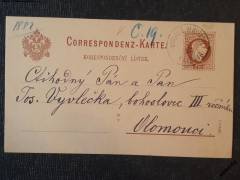 1882
C. 19.
CORRESPONDENZ-KARTE
KORESPONDENČNÍ LÍSTEK
Ctihodný Pán a Pan
Jos. Vyvlečka, bohoslovec III. ročníku
Olomouci